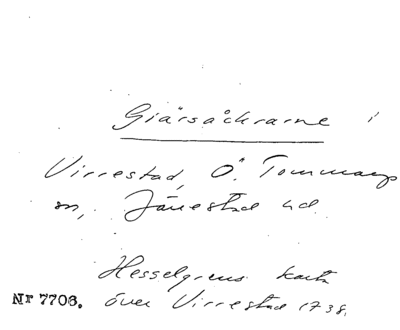 Giärsåckrarne i
Virrestad, Ö. Tommarps
sn, Järrestad hd
Hesselgrens karta
Nr 7706. över Virrestad 1738.